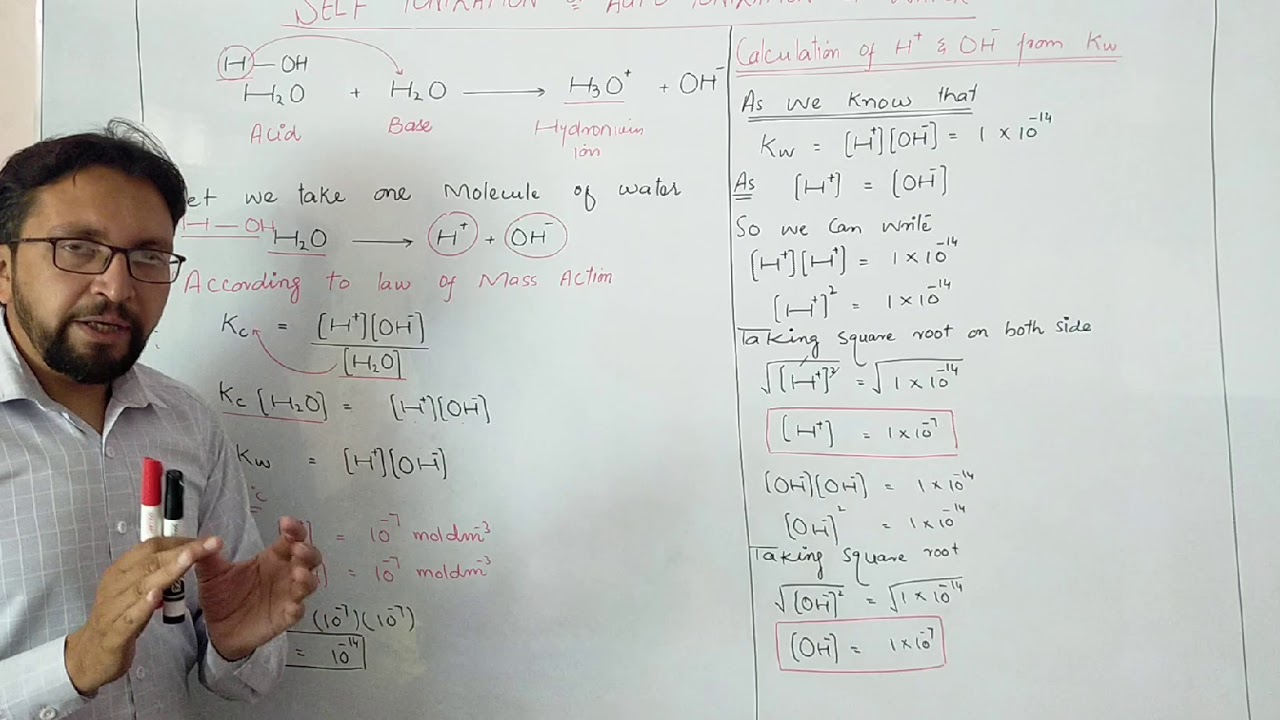 SELF IONIZATION OR AUTO IONIZATION OF WATER
H — OH
H₂O + H₂O → H₃O⁺ + OH⁻
Acid Base Hydronium
Ion
let we take one Molecule of water
H — OH
H₂O → H⁺ + OH⁻
According to law of Mass Action
Kc = [H⁺][OH⁻]
[H₂O]
Kc [H₂O] = [H⁺][OH⁻]
Kw = [H⁺][OH⁻]
°C
= 10⁻⁷ moldm⁻³
= 10⁻⁷ moldm⁻³
(10⁻⁷)(10⁻⁷)
= 10⁻¹⁴
Calculation of H⁺ & OH⁻ from Kw
As we know that
Kw = [H⁺][OH⁻] = 1 × 10⁻¹⁴
As [H⁺] = [OH⁻]
So we can write
[H⁺][H⁺] = 1 × 10⁻¹⁴
[H⁺]² = 1 × 10⁻¹⁴
Taking square root on both side
√[H⁺]² = √1 × 10⁻¹⁴
[H⁺] = 1 × 10⁻⁷
[OH⁻][OH⁻] = 1 × 10⁻¹⁴
[OH⁻]² = 1 × 10⁻¹⁴
Taking square root
√[OH⁻]² = √1 × 10⁻¹⁴
[OH⁻] = 1 × 10⁻⁷